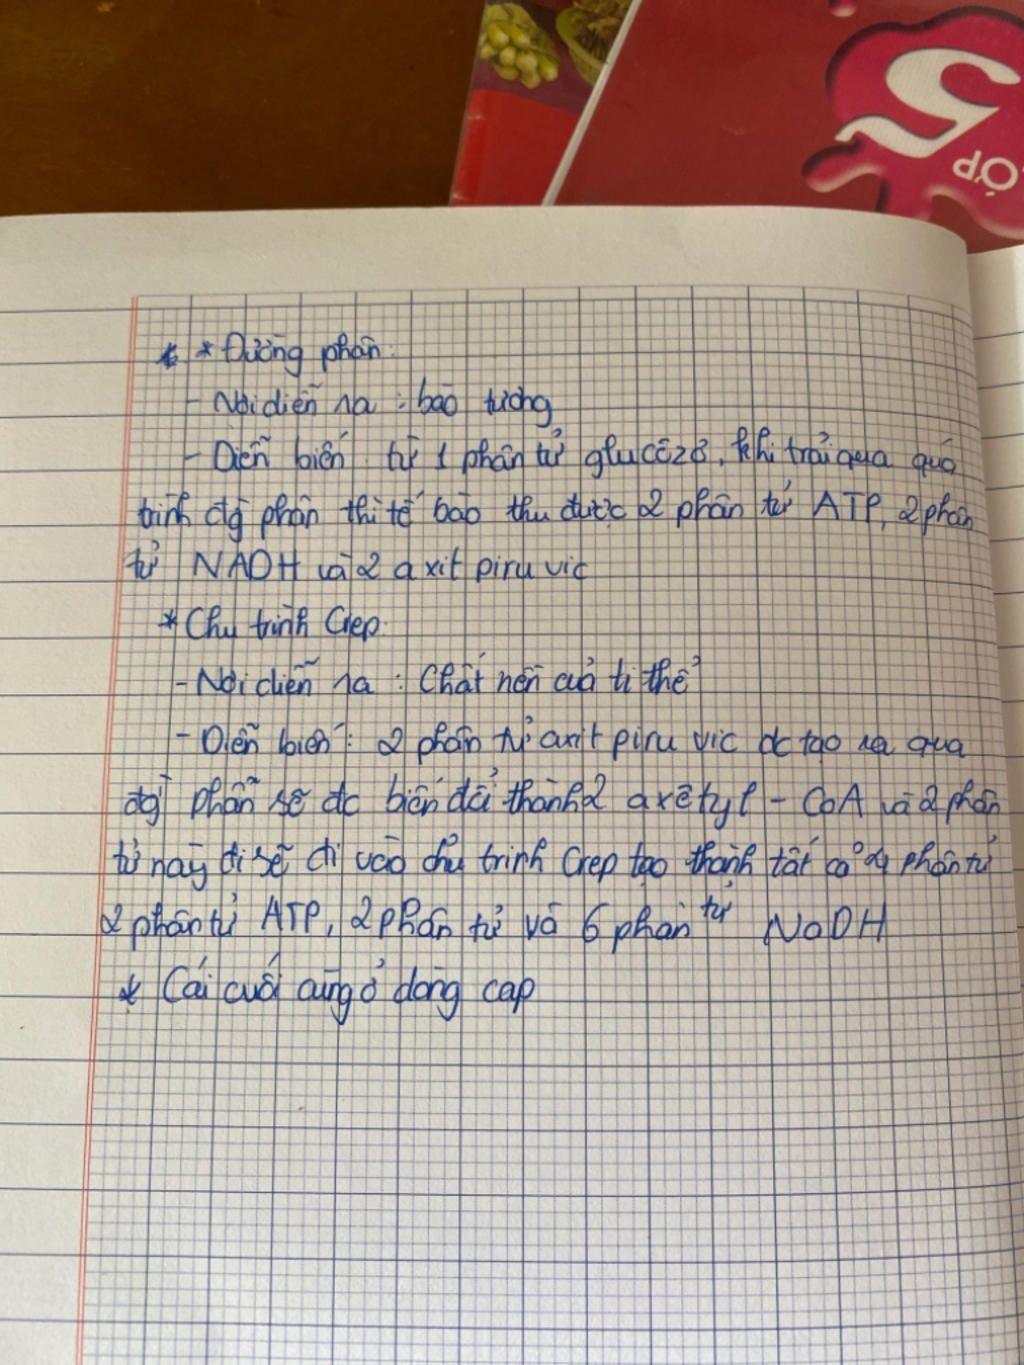 5
LỚP
* Đường phân:
- Nơi diễn ra : bào tương
- Diễn biến: từ 1 phân tử glucôzơ, khi trải qua quá
trình đg phân thì tế bào thu được 2 phân tử ATP, 2 phân
tử NADH và 2 axit piruvic
* Chu trình Crep:
- Nơi diễn ra : Chất nền của ti thể
- Diễn biến : 2 phân tử axit piru vic đc tạo ra qua
đg phân sẽ đc biến đổi thành 2 axêtyl - CoA và 2 phân
tử này đi sẽ đi vào chu trình Crep tạo thành tất cả 4 phân tử
2 phân tử ATP, 2 phân tử và 6 phân tử NaDH
* Cái cuối cùng ở dòng cap